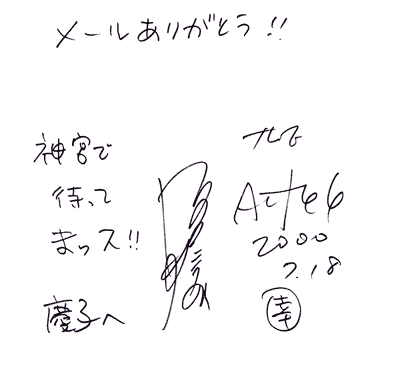 メールありがとう!!
神宮で
待って
まっス!!
慶子へ
2000
7.18
幸